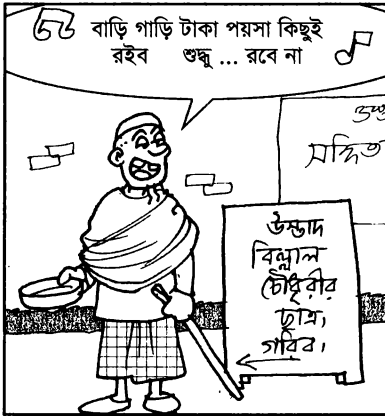 বাড়ি গাড়ি টাকা পয়সা কিছুই
রইব শুদ্ধু ... রবে না
সঙ্গিত
উস্তাদ
বিল্লাল
চৌধুরীর
ছাত্র,
গরিব।